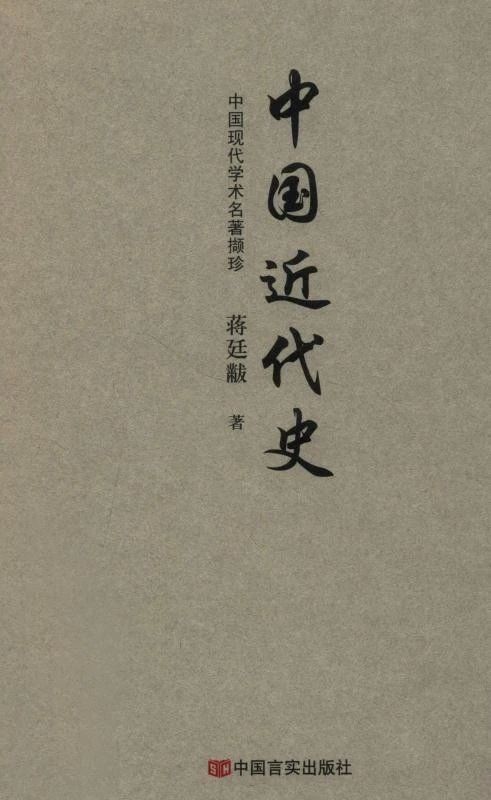 中国近代史
中国现代学术名著撷珍
蒋廷黻 著
SH 中国言实出版社